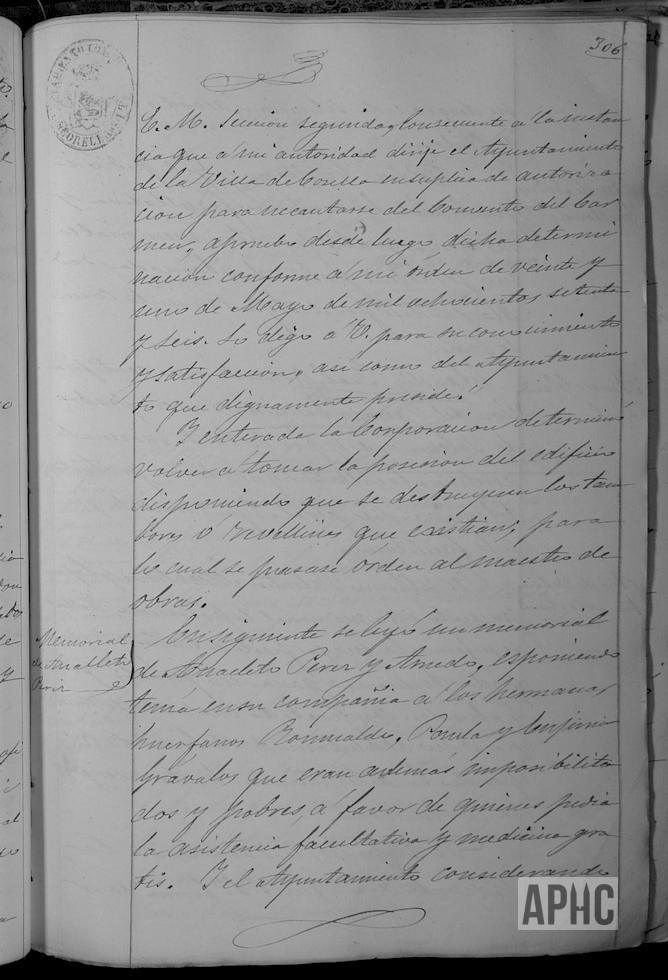 306
E. M. Seccion segunda, Consecuente á la instan
cia que á mi autoridad dirije el Ayuntamiento
de la Villa de Corella en suplica de autoriza
cion para incautarse del Convento del Car
men, apruebo desde luego dicha determi
nacion conforme á mi órden de veinte y
uno de Mayo de mil ochocientos setenta
y seis. Lo digo á V. para su conocimiento
y satisfaccion, asi como del Ayuntamien
to que dignamente preside.
I enterada la Corporacion determinó
volver a tomar la posesion del edificio
disponiendo que se destruyeran los tam
bores o revellines que existian; para
lo cual se pasase órden al maestro de
obras.
Memorial
de Anacleto
Perez
Consiguiente se leyó un memorial
de Anacleto Perez y Arnedo, esponiendo
tenia en su compañia á los hermanos
huerfanos Romualdo, Paula y
Grávalos que eran además imposibilita
dos y pobres, á favor de quienes pedia
la asistencia facultativa y medicina gra
tis. I el Ayuntamiento considerando
APHC